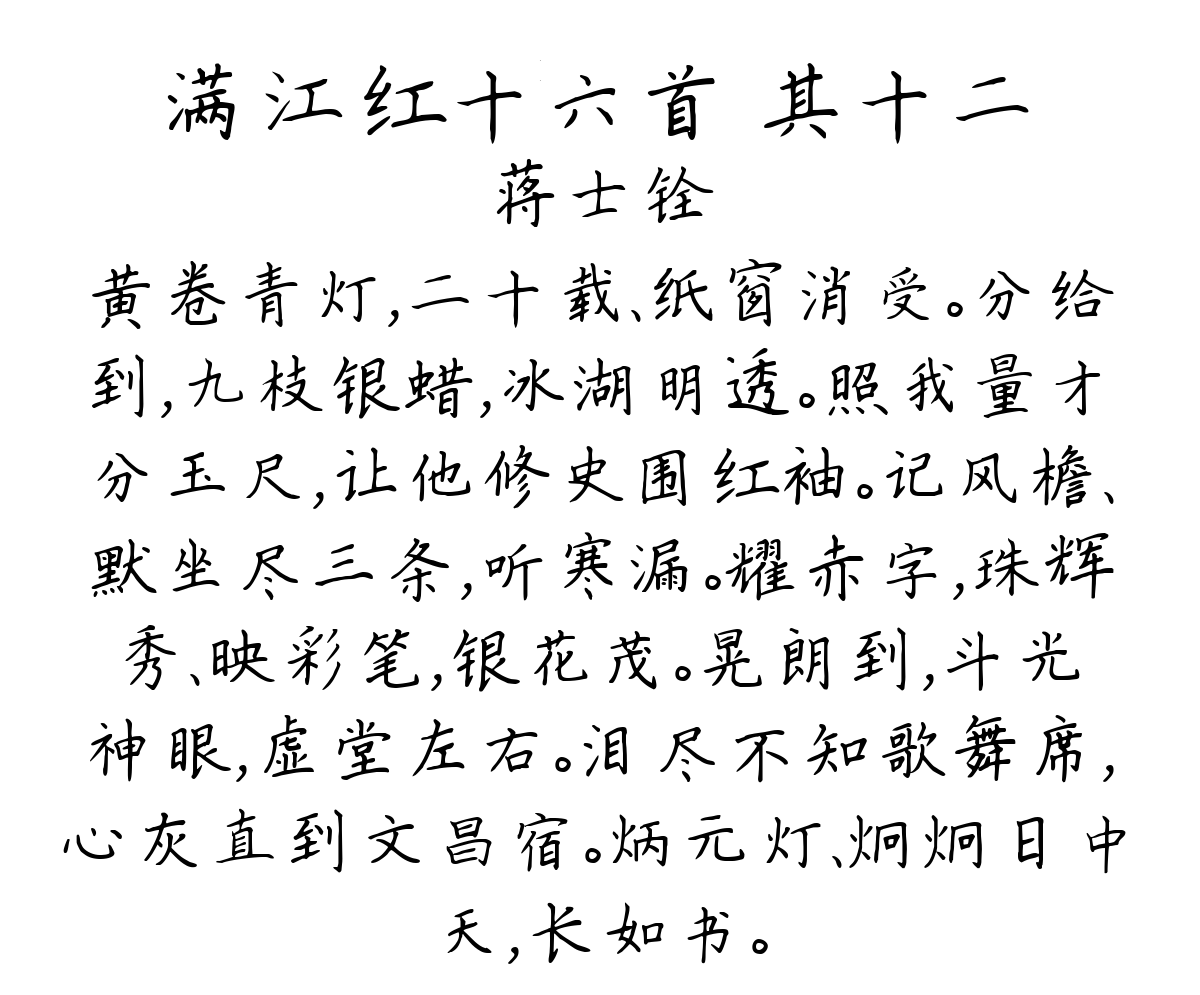 满江红十六首 其十二
蒋士铨
黄卷青灯,二十载、纸窗消受。分给
到,九枝银蜡,冰湖明透。照我量才
分玉尺,让他修史围红袖。记风檐、
默坐尽三条,听寒漏。耀赤字,珠辉
秀、映彩笔,银花茂。晃朗到,斗光
神眼,虚堂左右。泪尽不知歌舞席,
心灰直到文昌宿。炳元灯、炯炯日中
天,长如书。